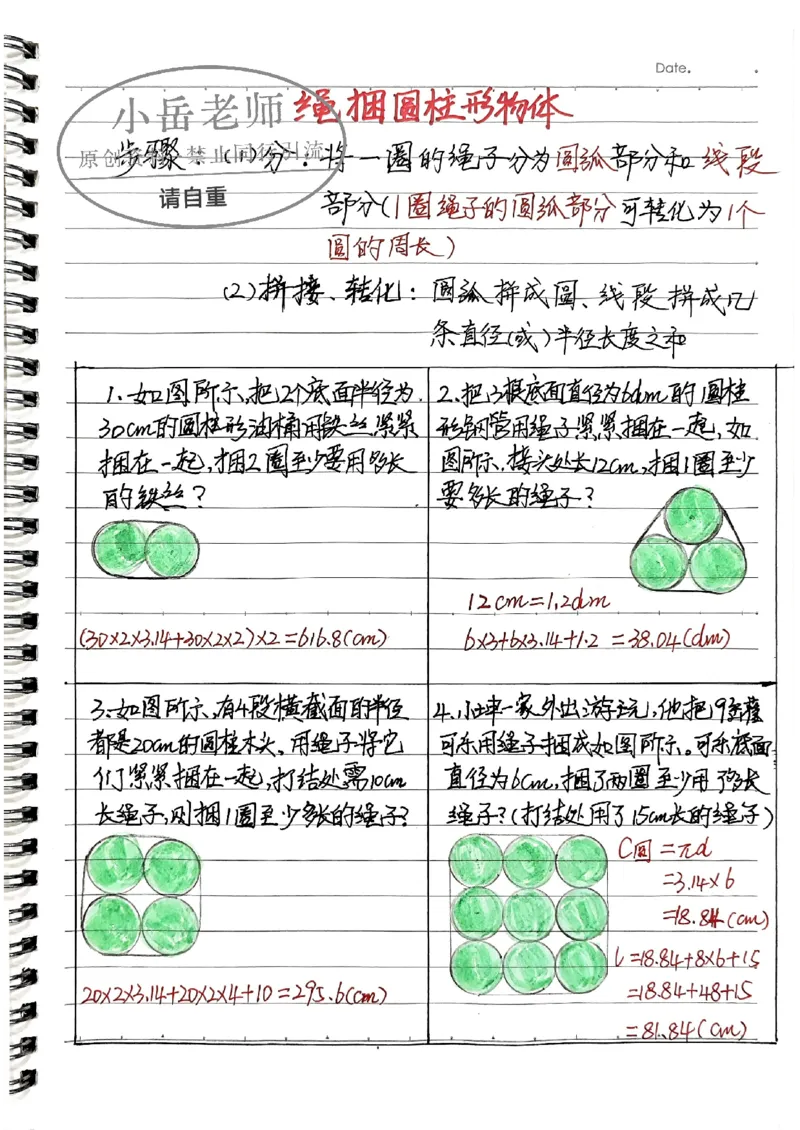 Date.
小岳老师
原创 禁止同行引流
请自重
绳捆圆柱形物体
步骤:(1)分:将一圈的绳子分为圆弧部分和线段
部分(1圈绳子的圆弧部分可转化为1个
圆的周长)
(2)拼接、转化:圆弧拼成圆、线段拼成几
条直径(或)半径长度之和
1.如图所示,把2个底面半径为
30cm的圆柱形油桶用铁丝紧紧
捆在一起,捆2圈至少要用多长
的铁丝?
(30×2×3.14+30×2×2)×2=616.8(cm)
2.把3根底面直径为6dm的圆柱
形钢管用绳子紧紧捆在一起,如
图所示,接头处长12cm,捆1圈至少
要多长的绳子?
12cm=1.2dm
6×3+6×3.14+1.2=38.04(dm)
3.如图所示,有4段横截面的半径
都是20cm的圆柱木头。用绳子将它
们紧紧捆在一起,打结处需10cm
长绳子,则捆1圈至少多长的绳子?
20×2×3.14+20×2×4+10=295.6(cm)
4.小坤一家外出游玩,他把9至罐
可乐用绳子捆成如图所示。可乐底面
直径为6cm,捆了两圈至少用了多长
绳子?(打结处用了15cm长的绳子)
C圆=πd
=3.14×6
=18.84(cm)
l=18.84+8×6+15
=18.84+48+15
=81.84(cm)